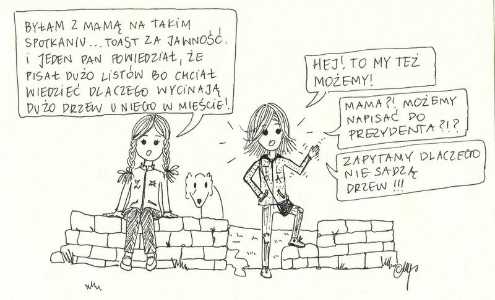 BYŁAM Z MAMĄ NA TAKIM
SPOTKANIU... TOAST ZA JAWNOŚĆ.
I JEDEN PAN POWIEDZIAŁ, ŻE
PISAŁ DUŻO LISTÓW BO CHCIAŁ
WIEDZIEĆ DLACZEGO WYCINAJĄ
DUŻO DRZEW U NIEGO W MIEŚCIE!
HEJ! TO MY TEŻ
MOŻEMY!
MAMA?! MOŻEMY
NAPISAĆ DO
PREZYDENTA?!?
ZAPYTAMY DLACZEGO
NIE SADZĄ
DRZEW!!!